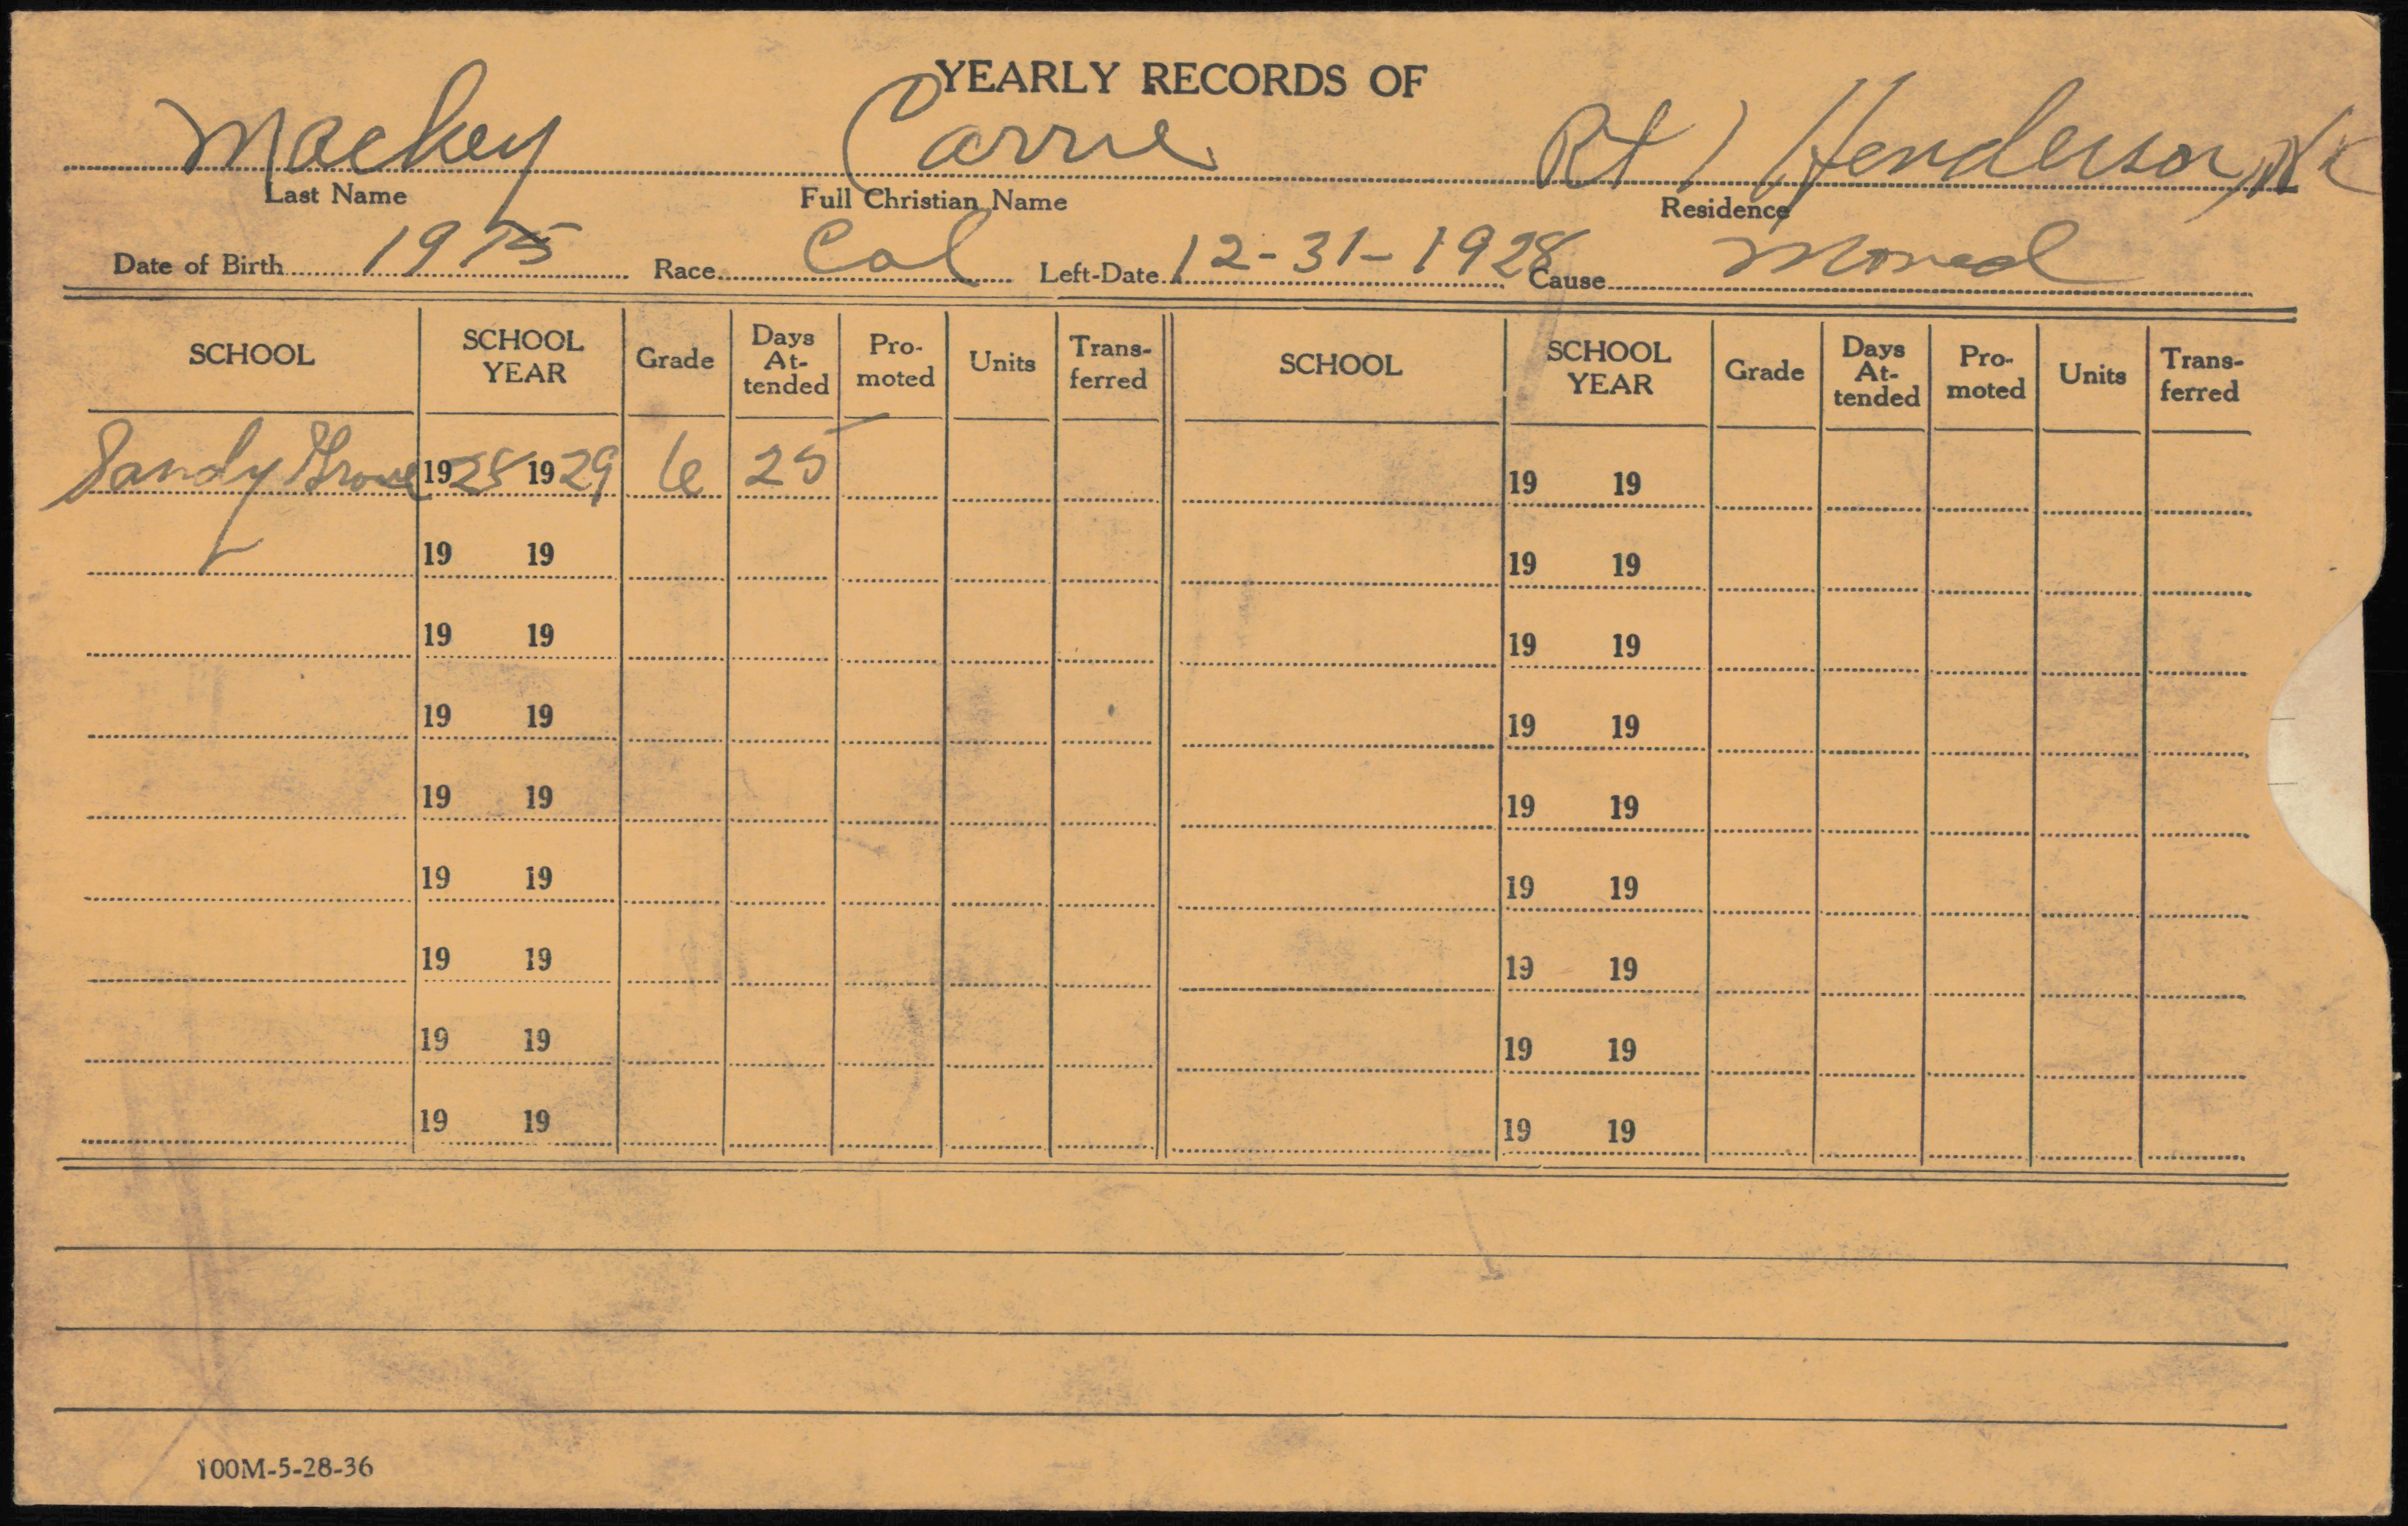 YEARLY RECORDS OF
Mackey Carrie Rt 1 Henderson, N C
Last Name Full Christian Name Residence
Date of Birth 1915 Race Col Left-Date 12-31-1928 Cause Moved
SCHOOL SCHOOL YEAR Grade Days At-tended Pro-moted Units Trans-ferred SCHOOL SCHOOL YEAR Grade Days At-tended Pro-moted Units Trans-ferred
Sandy Grove 1928 1929 6 25 19 19
19 19 19 19
19 19 19 19
19 19 19 19
19 19 19 19
19 19 19 19
19 19 19 19
19 19 19 19
19 19 19 19
100M-5-28-36